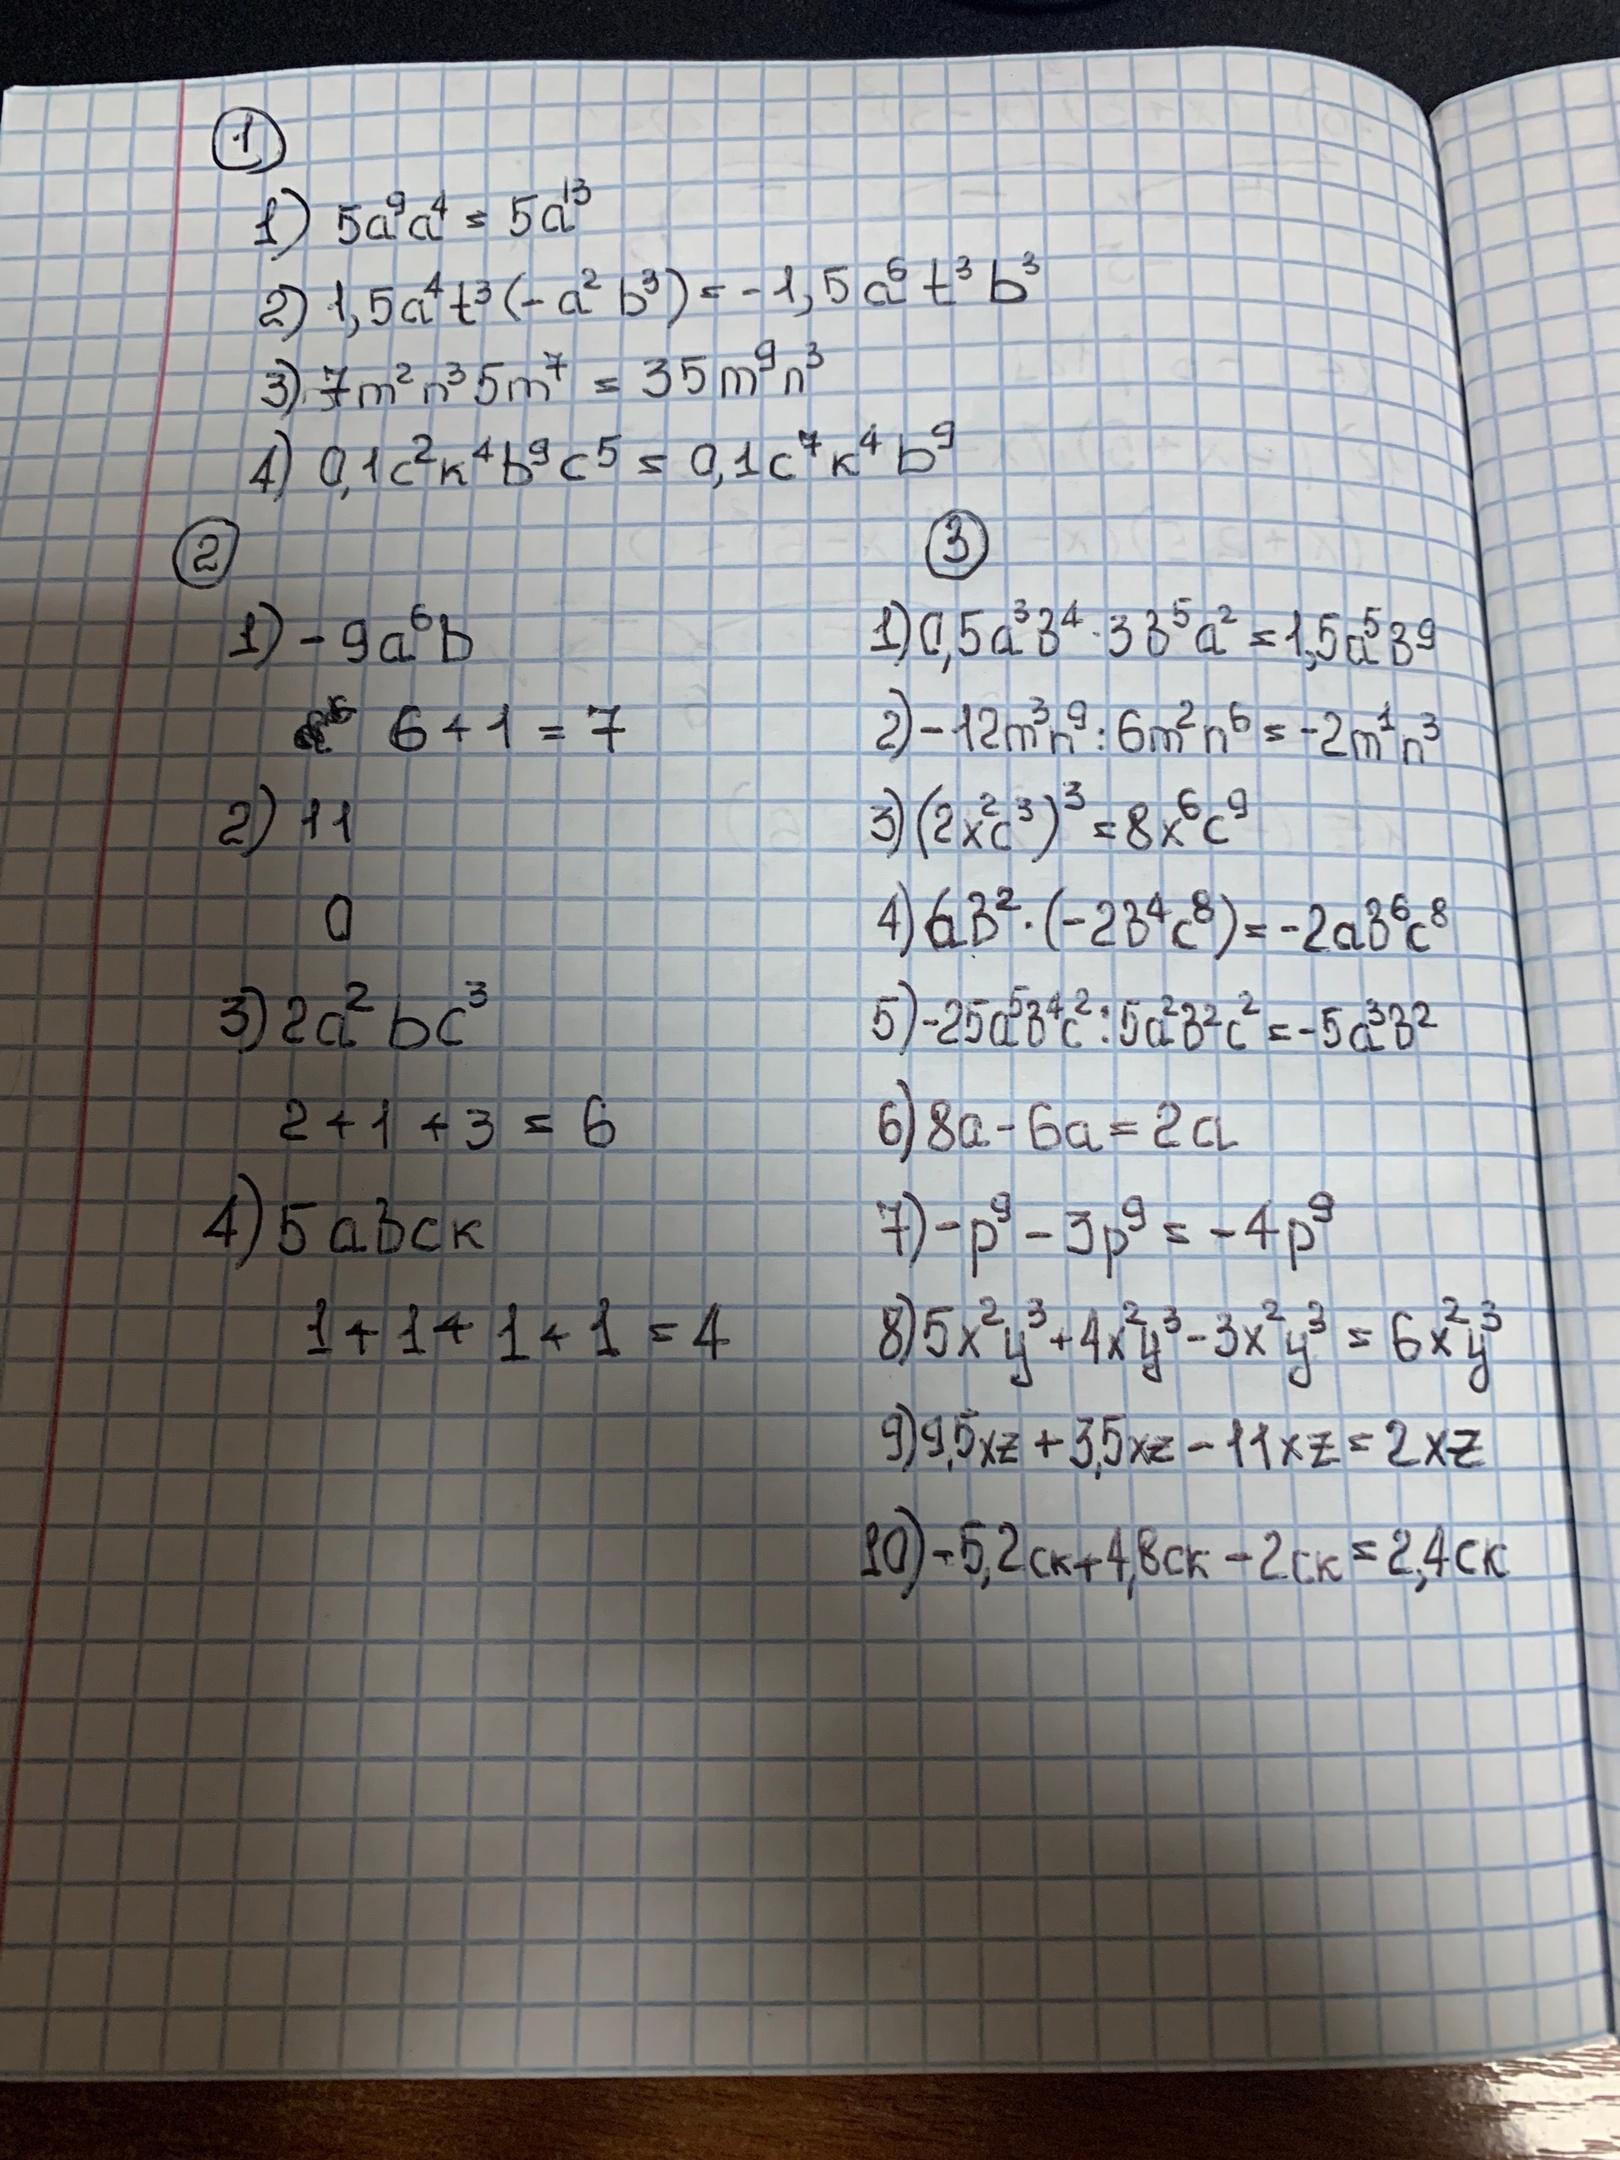 1
1) 5a⁹a⁴ = 5a¹³
2) 1,5a⁴t³(-a²b³) = -1,5a⁶t³b³
3) 7m²n³5m⁷ = 35m⁹n³
4) 0,1c²к⁴b⁹c⁵ = 0,1c⁷к⁴b⁹
2
1) -9a⁶b
6+1=7
2) 11
0
3) 2a²bc³
2+1+3=6
4) 5aвcк
1+1+1+1=4
3
1) 0,5a³в⁴·3в⁵a²=1,5a⁵в⁹
2) -12m³n⁹:6m²n⁶=-2m¹n³
3) (2x²c³)³=8x⁶c⁹
4) aв²·(-2в⁴c⁸)=-2aв⁶c⁸
5) -25a⁵в⁴c²:5a²в²c²=-5a³в²
6) 8a-6a=2a
7) -p⁹-3p⁹=-4p⁹
8) 5x²y³+4x²y³-3x²y³=6x²y³
9) 9,5xz+3,5xz-11xz=2xz
10) -5,2cк+4,8cк-2cк=2,4cк